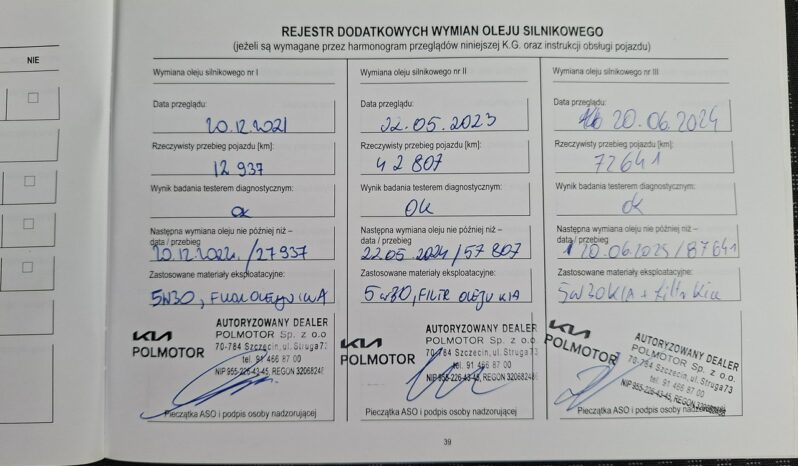 NIE
REJESTR DODATKOWYCH WYMIAN OLEJU SILNIKOWEGO
(jeżeli są wymagane przez harmonogram przeglądów niniejszej K.G. oraz instrukcji obsługi pojazdu)
Wymiana oleju silnikowego nr I
Data przeglądu:
20.12.2021
Rzeczywisty przebieg pojazdu [km]:
12 937
Wynik badania testerem diagnostycznym:
ok
Następna wymiana oleju nie później niż –
data / przebieg
20.12.2022 / 27937
Zastosowane materiały eksploatacyjne:
5W30, FILTR OLEJU KIA
KIA
POLMOTOR
AUTORYZOWANY DEALER
POLMOTOR Sp. z o.o.
70-784 Szczecin, ul. Struga 73
tel. 91 466 87 00
NIP 955-226-43-45, REGON 32068248
Pieczątka ASO i podpis osoby nadzorującej
Wymiana oleju silnikowego nr II
Data przeglądu:
22.05.2023
Rzeczywisty przebieg pojazdu [km]:
42 807
Wynik badania testerem diagnostycznym:
OK
Następna wymiana oleju nie później niż –
data / przebieg
22.05.2024 / 57 807
Zastosowane materiały eksploatacyjne:
5W30, FILTR OLEJU KIA
KIA
POLMOTOR
AUTORYZOWANY DEALER
POLMOTOR Sp. z o.o.
70-784 Szczecin, ul. Struga 73
tel. 91 466 87 00
NIP 955-226-43-45, REGON 32068248
Pieczątka ASO i podpis osoby nadzorującej
Wymiana oleju silnikowego nr III
Data przeglądu:
20.06.2024
Rzeczywisty przebieg pojazdu [km]:
72641
Wynik badania testerem diagnostycznym:
ok
Następna wymiana oleju nie później niż –
data / przebieg
20.06.2025 / 87641
Zastosowane materiały eksploatacyjne:
5W30 KIA + filtr Kia
KIA
POLMOTOR
AUTORYZOWANY DEALER
POLMOTOR Sp. z o.o.
70-784 Szczecin, ul. Struga 73
tel. 91 466 87 00
NIP 955-226-43-45, REGON
Pieczątka ASO i podpis osoby nadzorującej
39